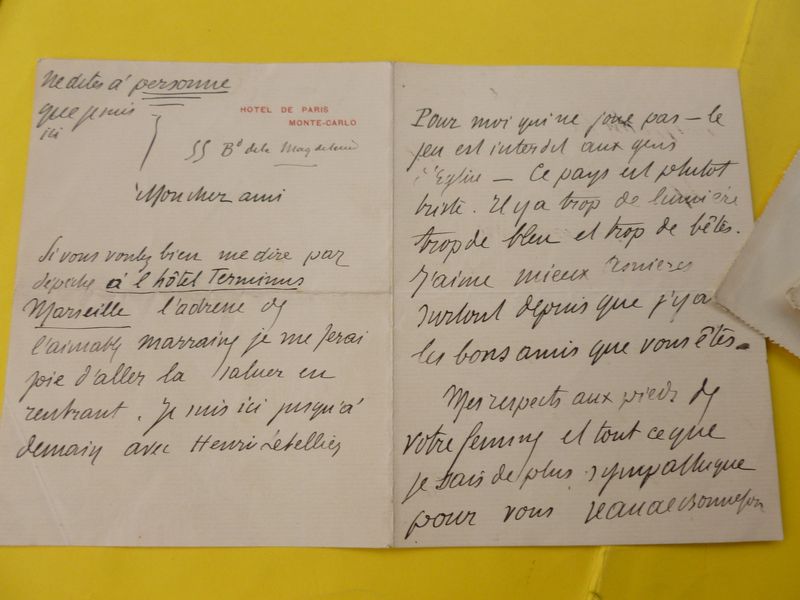 Ne dites à personne
que je suis
ici
HOTEL DE PARIS
MONTE-CARLO
55 Bd de la Magdeleine
Mon cher ami
Si vous voulez bien me dire par
depeche à l'hôtel Terminus
Marseille l'adresse de
l'aimable marraine je me ferai
joie d'aller la saluer en
rentrant. Je suis ici jusqu'à
demain avec Henri Letellier
Pour moi qui ne joue pas – le
jeu est interdit aux gens
d'Eglise – Ce pays est plutot
triste. Il y a trop de lumière
trop de bleu et trop de bêtes.
J'aime mieux
surtout depuis que j'y a
les bons amis que vous êtes.
Mes respects aux pieds de
votre femme et tout ce que
je sais de plus sympathique
pour vous Jean de Bonnefon